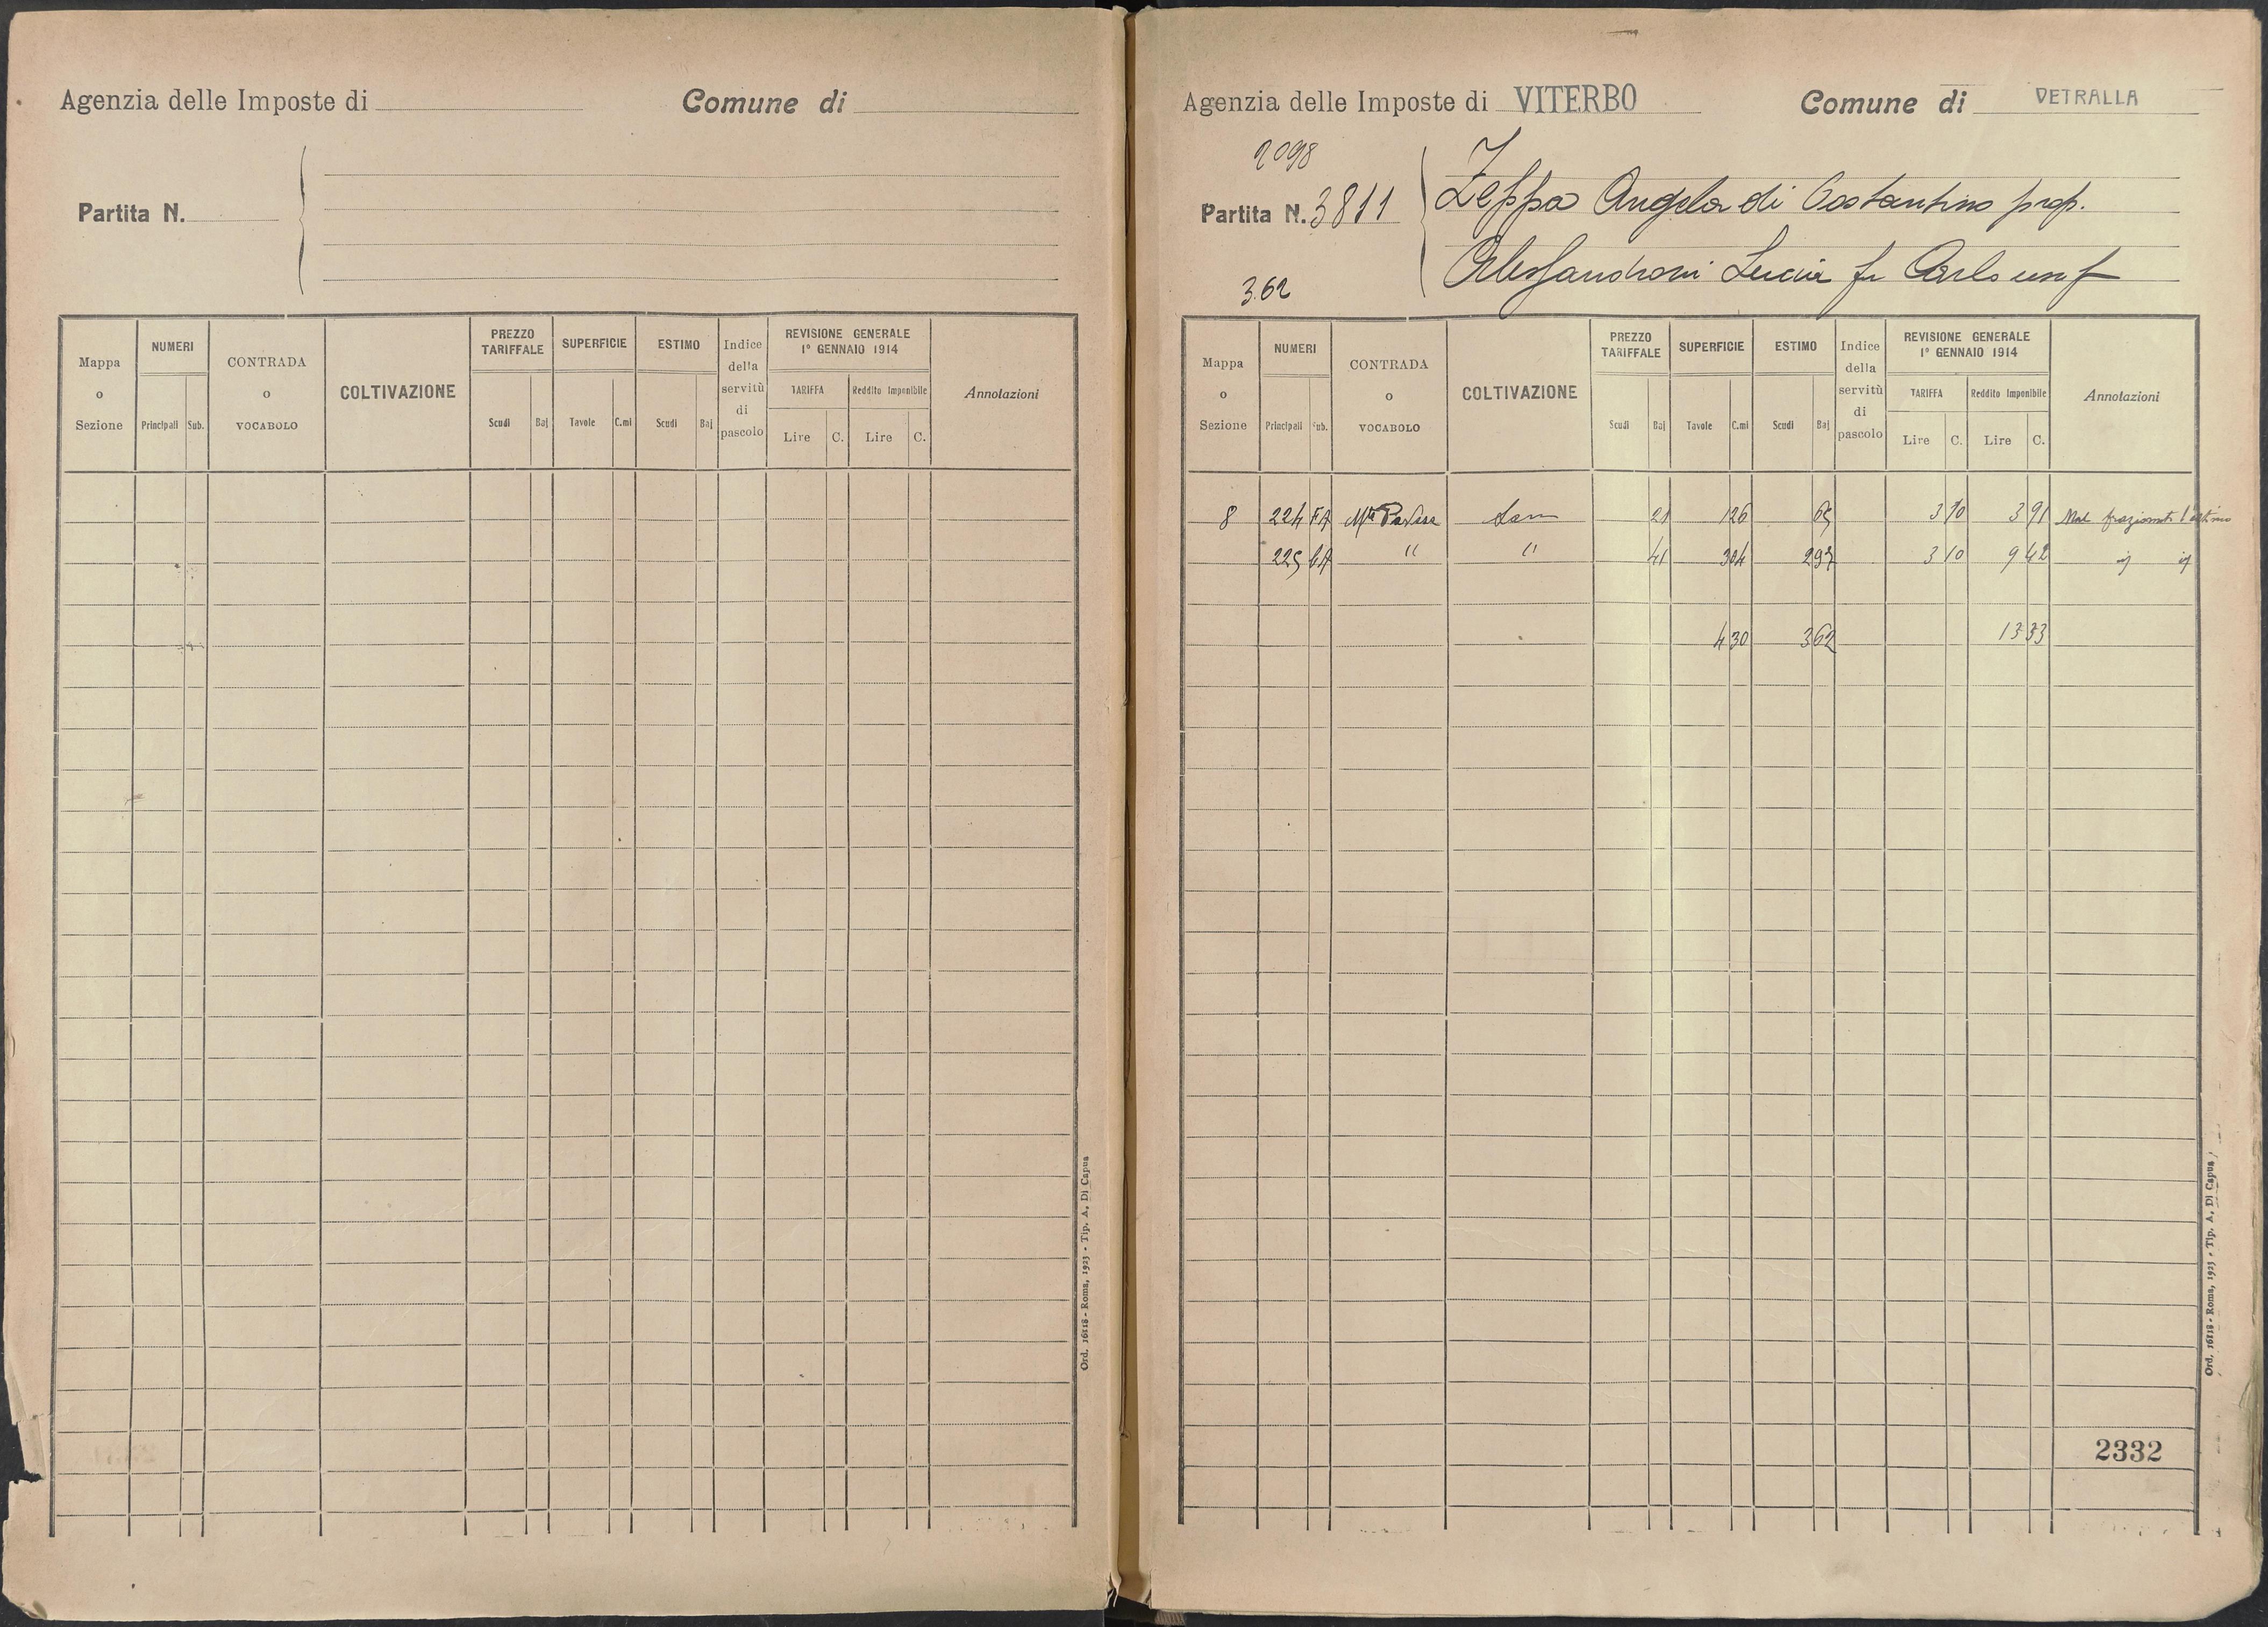 Agenzia delle Imposte di
Comune di
Partita N.
Mappa o Sezione
NUMERI
Principali Sub.
CONTRADA o VOCABOLO
COLTIVAZIONE
PREZZO TARIFFALE
Scudi Baj
SUPERFICIE
Tavole C.mi
ESTIMO
Scudi Baj
Indice della servitù di pascolo
REVISIONE GENERALE
1° GENNAIO 1914
TARIFFA
Lire C.
Reddito Imponibile
Lire C.
Annotazioni
Ord. 16118 - Roma, 1923 - Tip. A. Di Capua
Agenzia delle Imposte di VITERBO
Comune di VETRALLA
2098
Partita N. 3811
Zeppa Angela di Costantino prop.
Alessandroni Lucia fu Carlo usuf
3.62
Mappa o Sezione
NUMERI
Principali Sub.
CONTRADA o VOCABOLO
COLTIVAZIONE
PREZZO TARIFFALE
Scudi Baj
SUPERFICIE
Tavole C.mi
ESTIMO
Scudi Baj
Indice della servitù di pascolo
REVISIONE GENERALE
1° GENNAIO 1914
TARIFFA
Lire C.
Reddito Imponibile
Lire C.
Annotazioni
8 224 21 1 26 65 3 10 3 91 Mal frazionato l'estimo
225 " " 41 3 04 2 97 3 10 9 42
4 30 3 62 13 33
2332
Ord. 16118 - Roma, 1923 - Tip. A. Di Capua